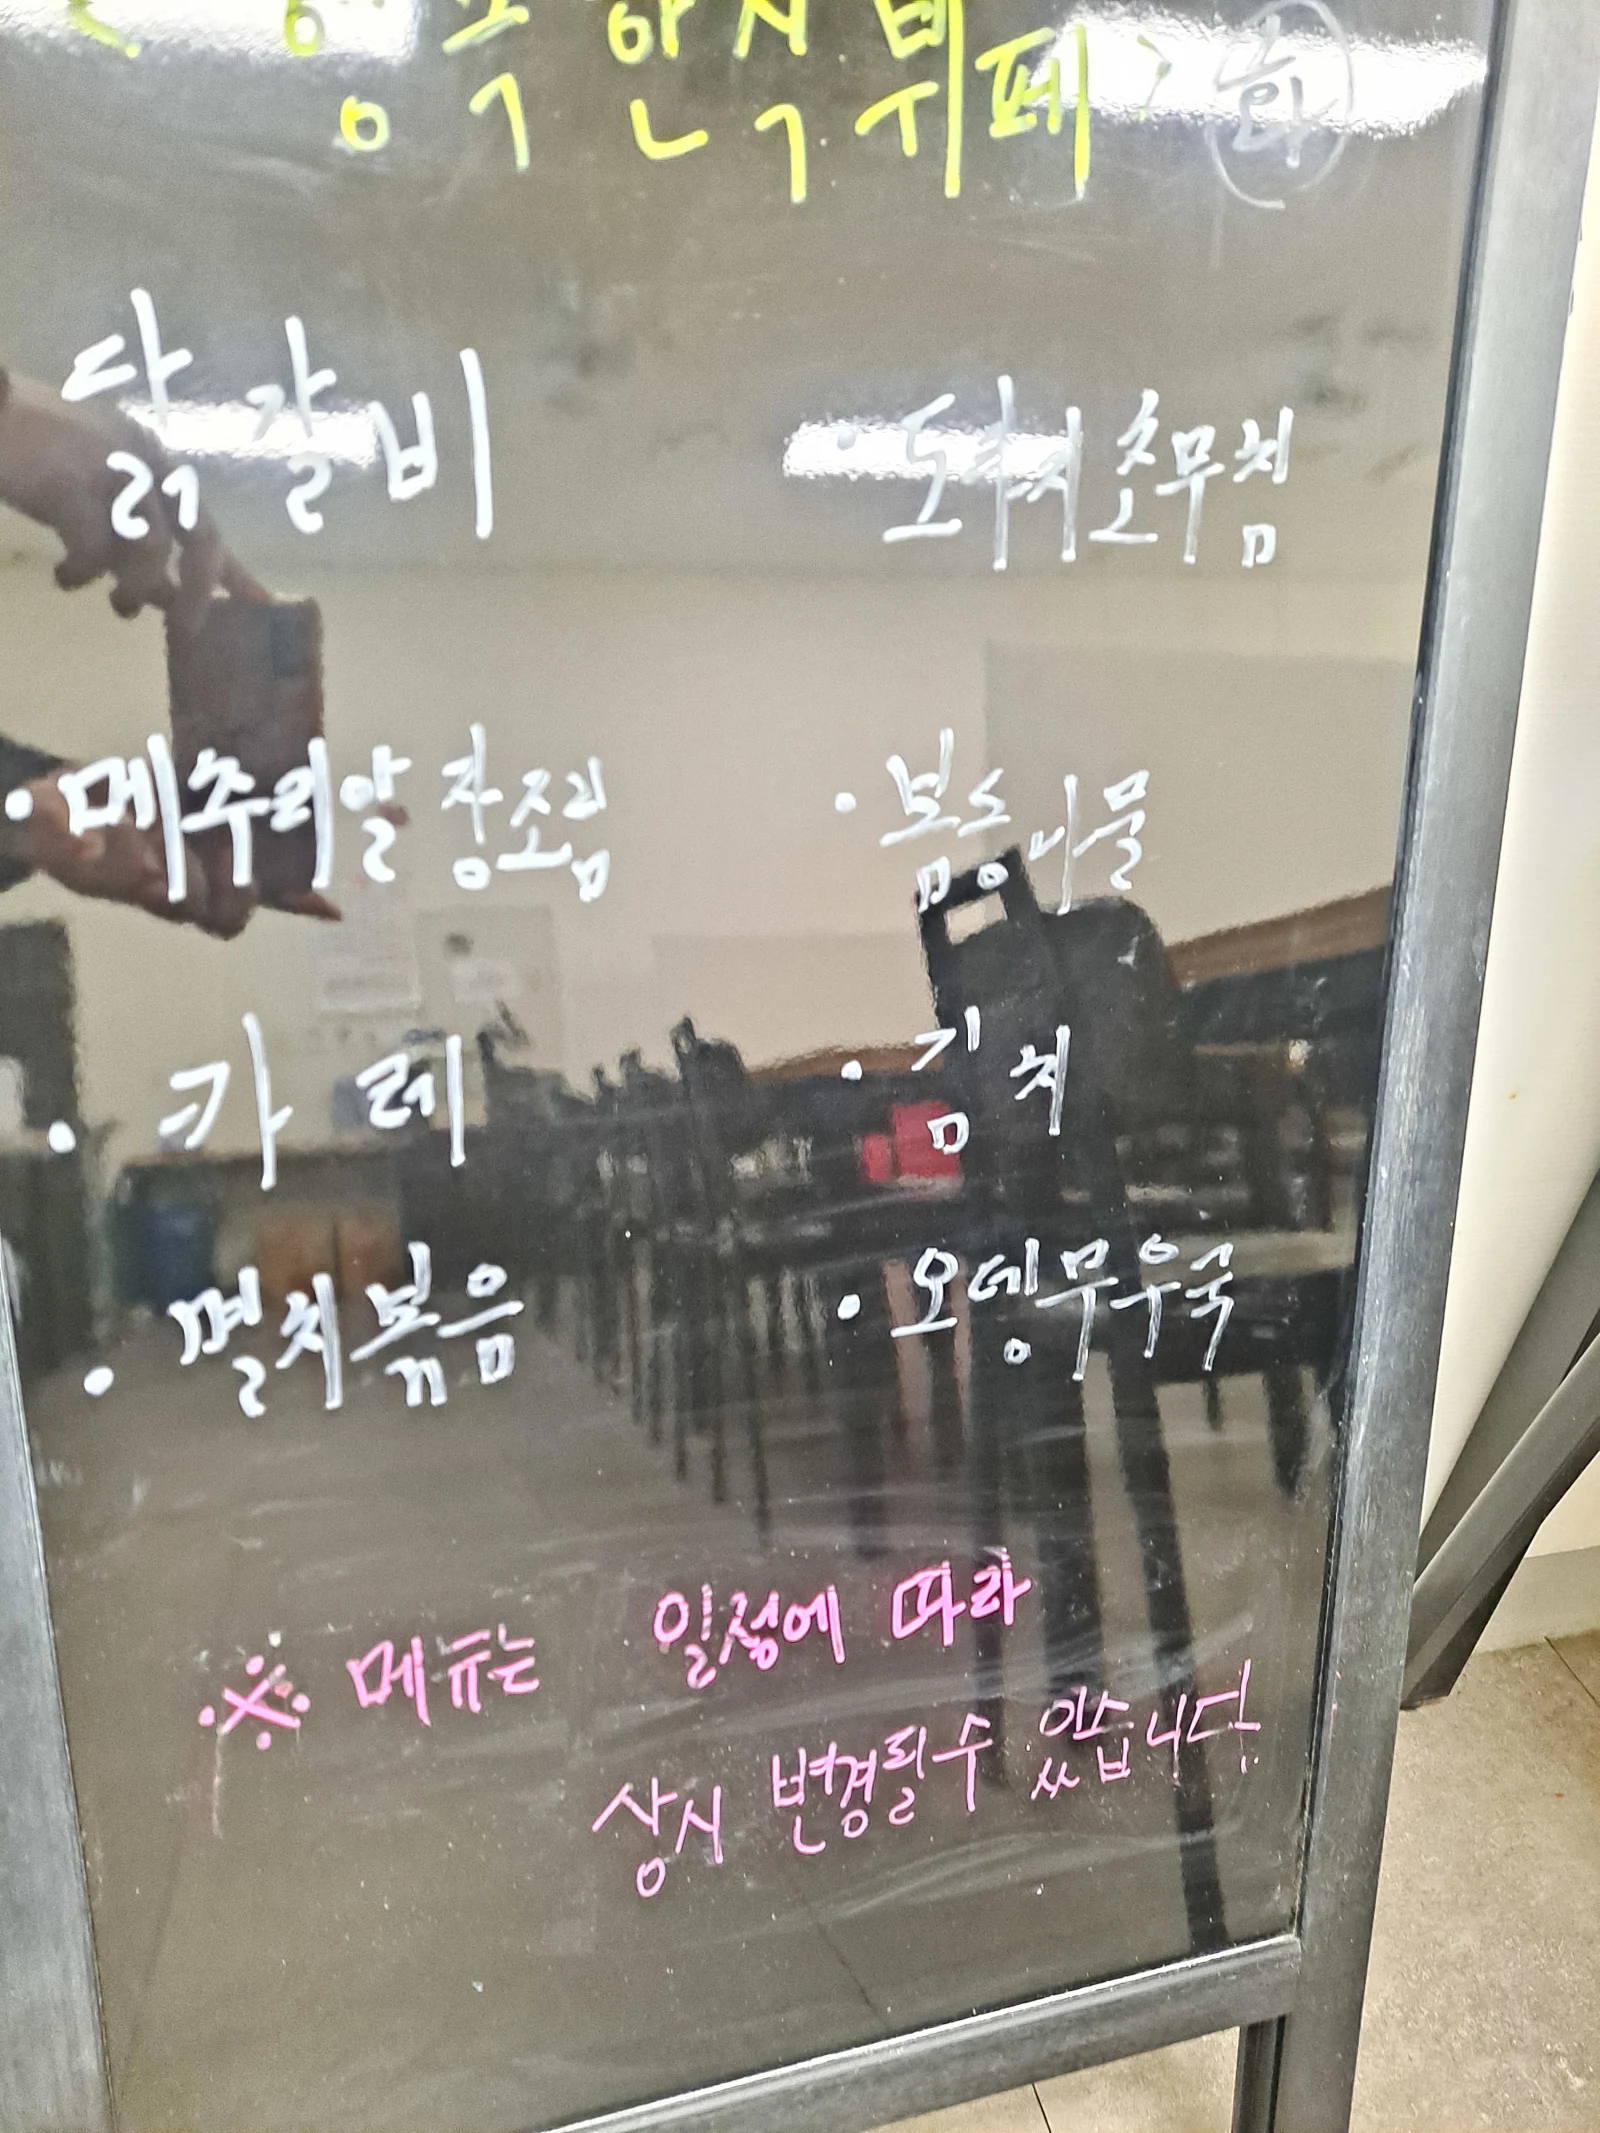 한식뷔페 화
닭갈비
· 도라지초무침
· 메추리알 장조림
· 봄동나물
· 카레
· 김치
· 멸치볶음
· 오뎅무우국
※ 메뉴는 일정에 따라
상시 변경될수 있습니다.